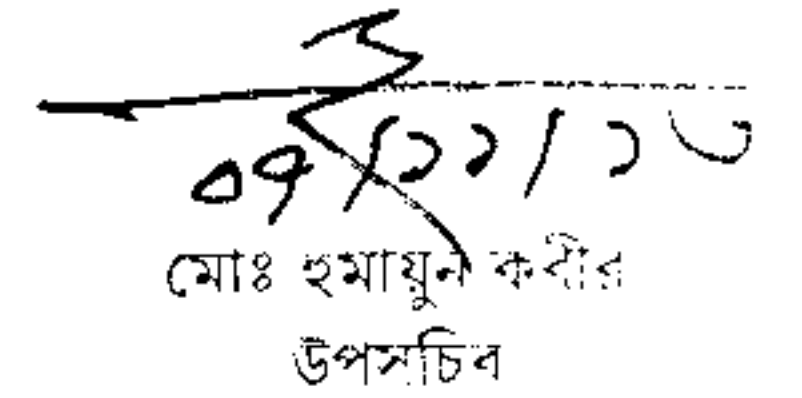 ০৭/১১/১৩
মোঃ হুমায়ুন কবীর
উপসচিব